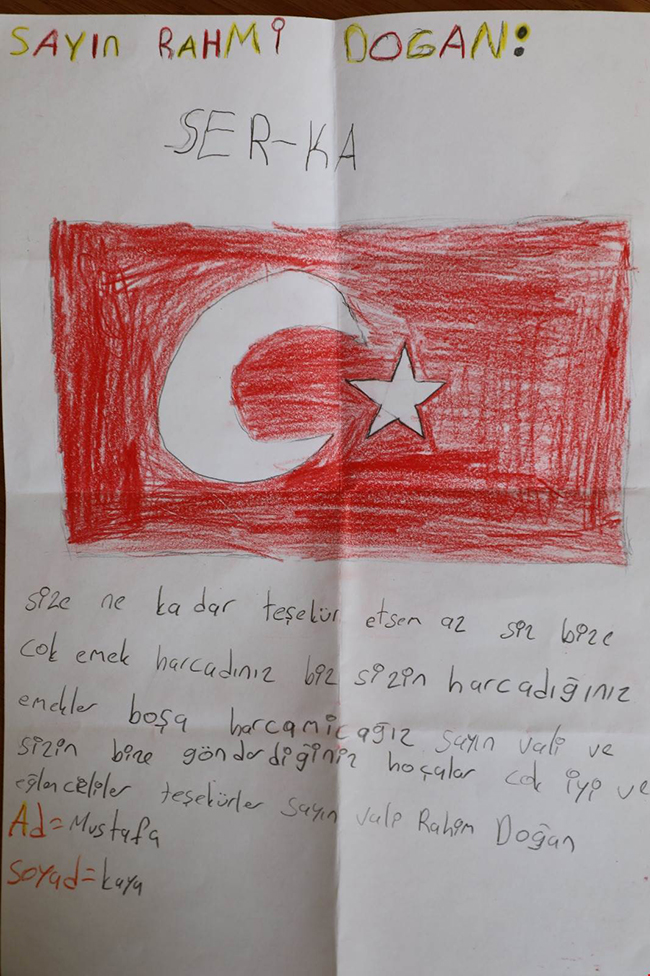 SAYIN RAHMİ DOGAN:
SER-KA
size ne kadar teşekür etsem az siz bize
cok emek harcadınız biz sizin harcadığınız
emekler boşa harcamicağız sayın vali ve
sizin bize gönderdiğiniz hoçalar cok iyi ve
eğlenceliler teşekürler sayın vali Rahim Doğan
Ad=Mustafa
Soyad=kaya